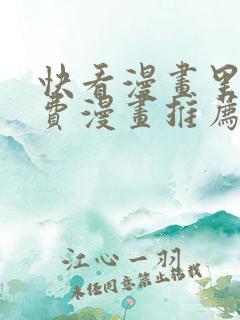 快看漫畫里
費漫畫推薦
江心一羽
未經同意禁止轉載